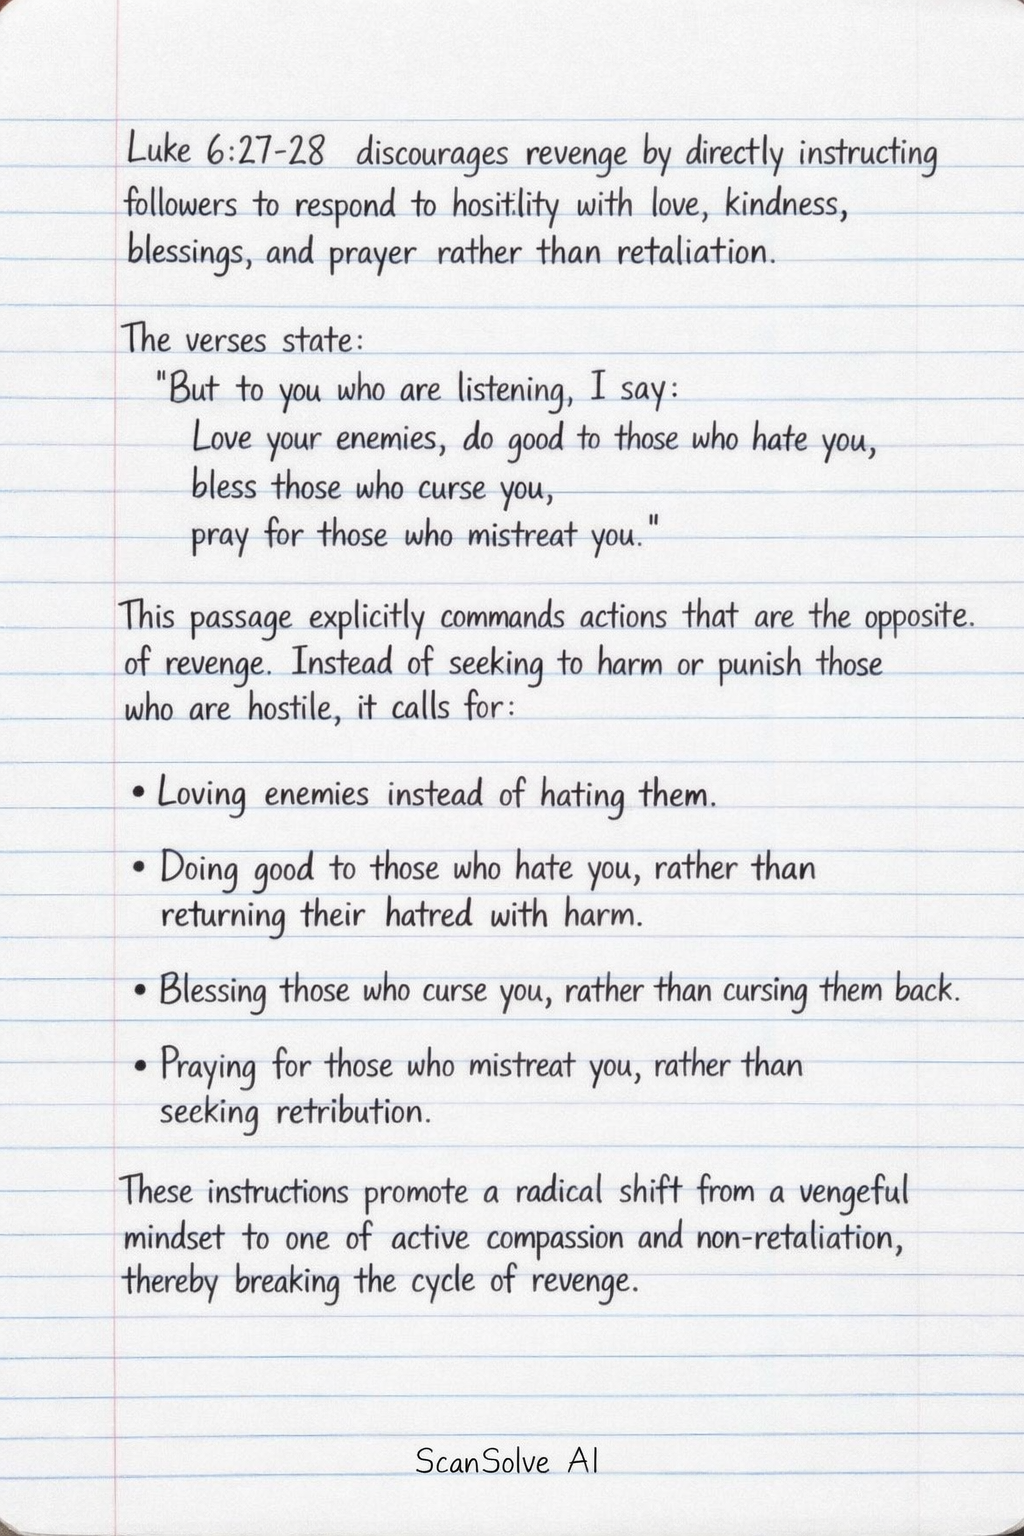 Luke 6:27-28 discourages revenge by directly instructing
followers to respond to hositility with love, kindness,
blessings, and prayer rather than retaliation.
The verses state:
"But to you who are listening, I say:
Love your enemies, do good to those who hate you,
bless those who curse you,
pray for those who mistreat you."
This passage explicitly commands actions that are the opposite.
of revenge. Instead of seeking to harm or punish those
who are hostile, it calls for:
• Loving enemies instead of hating them.
• Doing good to those who hate you, rather than
returning their hatred with harm.
• Blessing those who curse you, rather than cursing them back.
• Praying for those who mistreat you, rather than
seeking retribution.
These instructions promote a radical shift from a vengeful
mindset to one of active compassion and non-retaliation,
thereby breaking the cycle of revenge.
ScanSolve AI